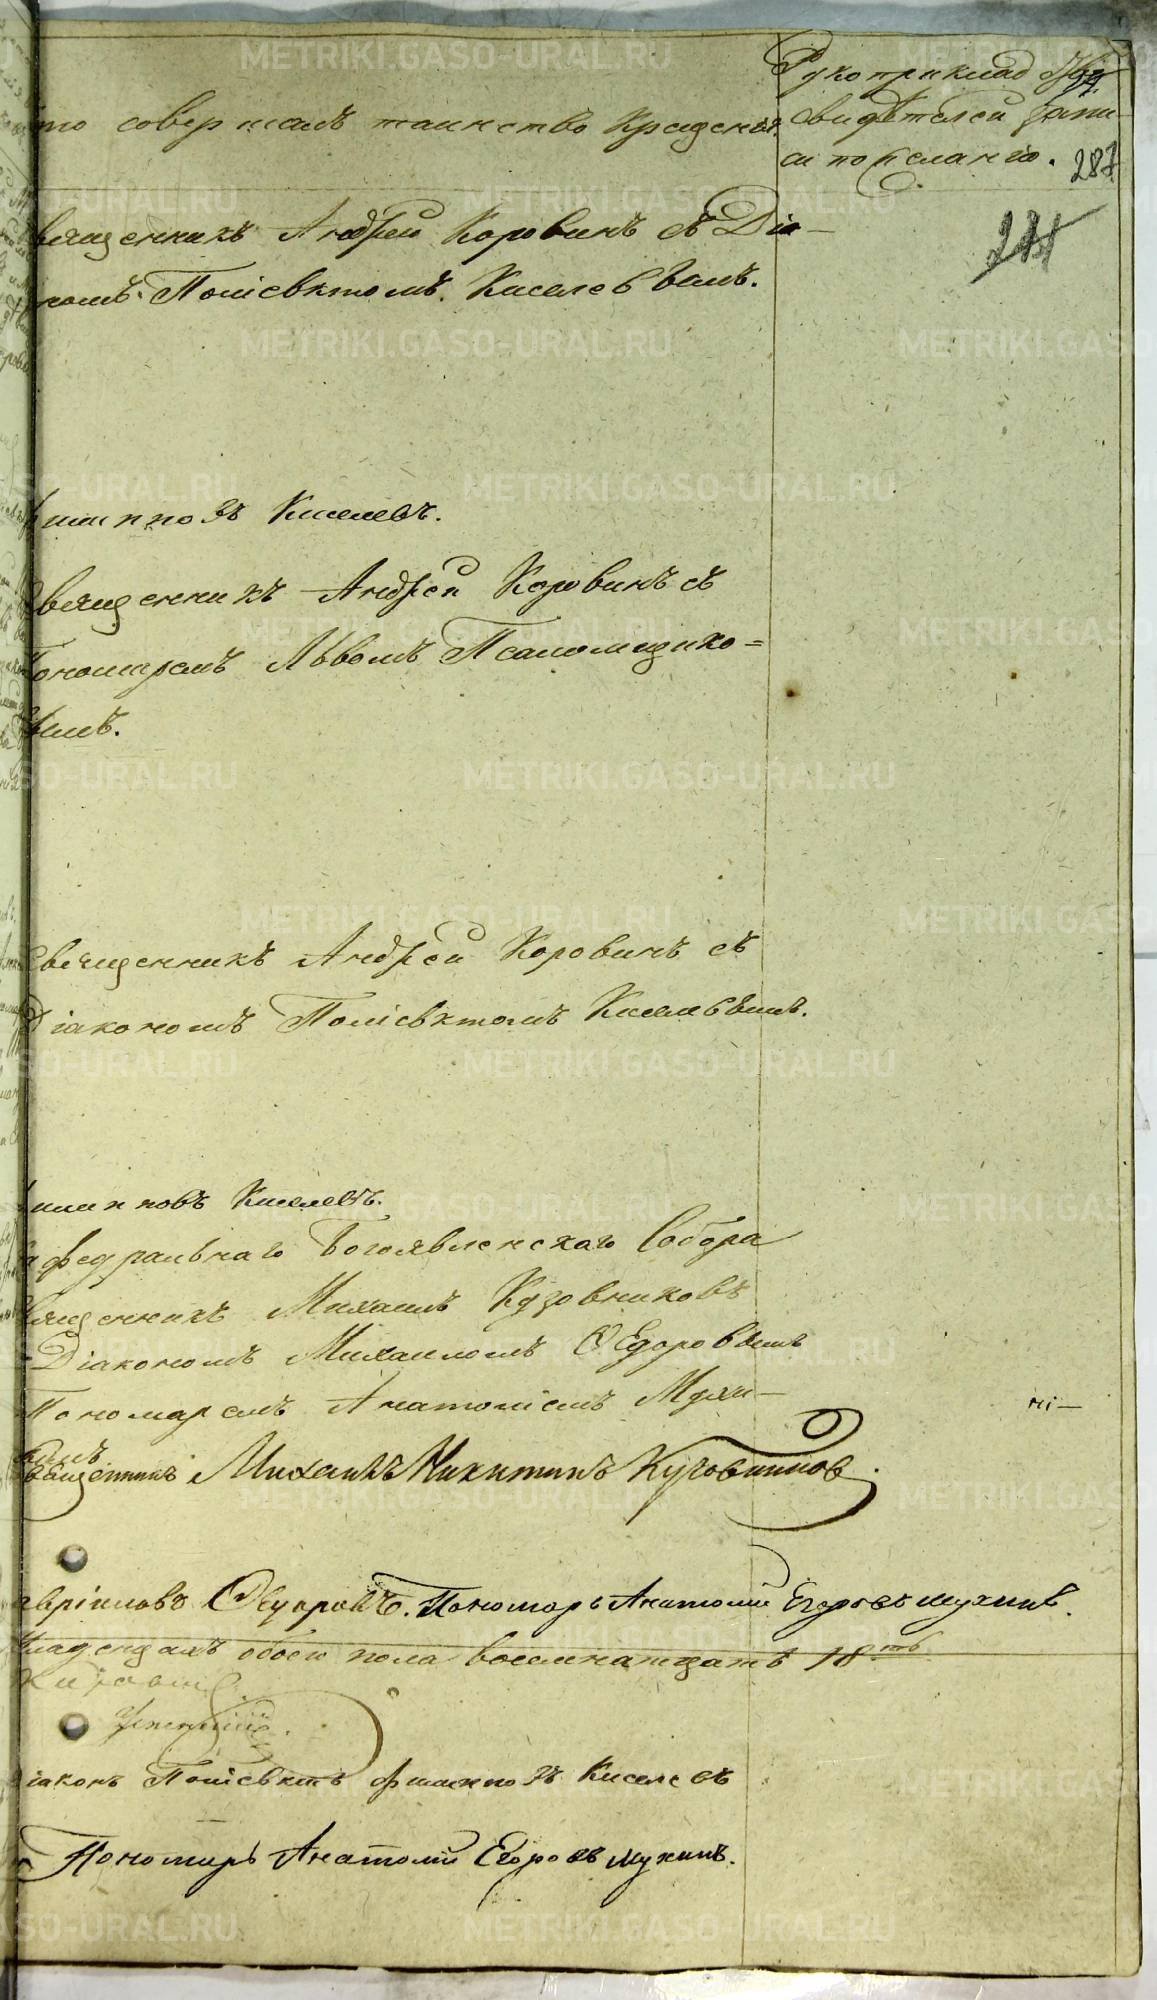 Рукоприклад
то совершалъ таинство Крещенія. свидѣтелей запи-
си по желанію. 287
вященникъ Андрей Коровинъ съ Діа-
кономъ Поліевктомъ Киселевымъ.
Филипповъ Киселевъ.
Священникъ Андрей Коровинъ съ
Пономаремъ Львомъ Псаломщико=
вымъ.
Священникъ Андрей Коровинъ съ
Діакономъ Поліевктомъ Киселевымъ.
Филипповъ Киселевъ.
афедральнаго Богоявленскаго Собора
вященникъ Михаилъ Кузовниковъ
Діакономъ Михаиломъ Ѳедоровымъ
Пономаремъ Анатоліемъ Мухи-
нымъ ні-
Священникъ Михаилъ Никитинъ Кузовниковъ.
авріиловъ Ѳедоровъ. Пономарь Анатолій Егоровъ Мухинъ.
младенцахъ обоего пола восемнатцать 18ть
іаконъ Поліевктъ Филипповъ Киселевъ
Пономарь Анатолій Егоровъ Мухинъ.
METRIKI.GASO-URAL.RU